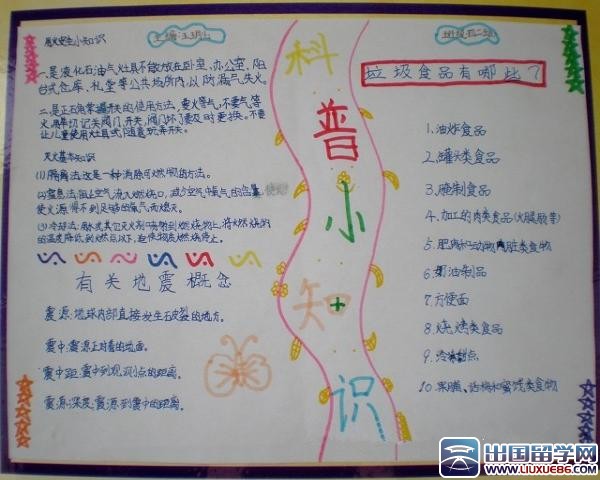 居火安全小知识
主编:王玥儿
一.是液化石油气灶具不能放在卧室、办公室、阳
台式仓库、礼堂等公共场所内,以防漏气失火。
二.是正确掌握开关的使用方法,要火等气,不要气等
火,用毕切记关阀门,开关,阀门坏了要及时更换。不要
让儿童使用灶具或随意玩弄开关。
灭火基本知识
(1)隔离法:这是一种消除可燃物的方法。
(2)窒息法:阻止空气流入燃烧区,减少空气中氧气的含量,
使火源得不到足够的氧气而熄灭。
(3)冷却法:用水或其它灭火剂喷射到燃烧物上,将燃烧物
的温度降低到燃点以下,迫使物质燃烧停止。
有关地震概念
震源:地球内部直接发生破裂的地方。
震中:震源上对着的地面。
震中距:震中到观测点的距离。
震源深度:震源到震中的距离。
科
普
小
知
识
班级:五二班
垃圾食品有哪些?
1.油炸食品
2.罐头类食品
3.腌制食品
4.加工的肉类食品(火腿肠等)
5.肥肉和动物内脏类食物
6.奶油制品
7.方便面
8.烧烤类食品
9.冷冻甜点
10.果脯、话梅和蜜饯类食物
出国留学网
WWW.LIUXUE86.COM